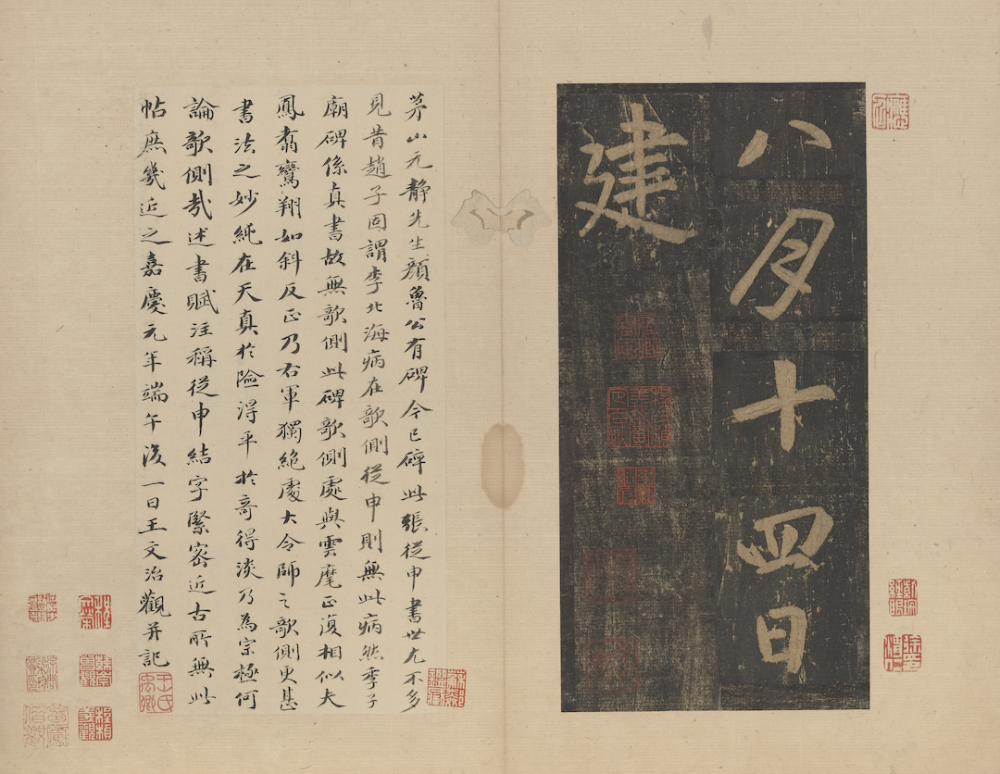 八月十四日
建
茅山元靜先生顏魯公有碑今已碎此張從申書世尤不多
見昔趙子固謂李北海病在欹側從申則無此病然季子
廟碑係真書故無欹側此碑欹側處與雲麾正復相似夫
鳳翥鸞翔如斜反正乃右軍獨絕處大令師之欹側更甚
書法之妙純在天真於險得平於奇得淡乃為宗極何
論欹側哉述書賦注稱從申結字緊密近古所無此
帖庶幾近之嘉慶元年端午後一日王文治觀并記